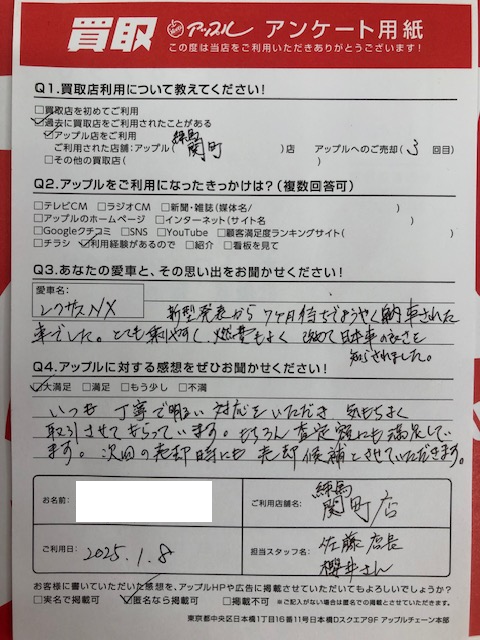 買取 アップル アンケート用紙
この度は当店をご利用いただきありがとうございます!
Q1.買取店利用について教えてください!
□買取店を初めてご利用
☑過去に買取店をご利用されたことがある
☑アップル店をご利用
ご利用された店舗:アップル( 練馬関町 )店 アップルへのご売却( 3 回目)
□その他の買取店( )
Q2.アップルをご利用になったきっかけは?(複数回答可)
□テレビCM □ラジオCM □新聞・雑誌(媒体名/ )
□アップルのホームページ □インターネット(サイト名 )
□Googleクチコミ □SNS □YouTube □顧客満足度ランキングサイト( )
□チラシ ☑利用経験があるので □紹介 □看板を見て
Q3.あなたの愛車と、その思い出をお聞かせください!
愛車名:
レクサスNX
新型発表から7ヶ月待ちでようやく納車された
車でした。とても乗りやすく、燃費もよく 改めて日本車の良さを
知らされました。
Q4.アップルに対する感想をぜひお聞かせください!
☑大満足 □満足 □もう少し □不満
いつも丁寧で明るい対応をいただき 気もちよく
取引させてもらっています。もちろん査定額にも満足してい
ます。次回の売却時にも売却候補とさせていただきます。
お名前:
ご利用店舗名: 練馬関町店
ご利用日: 2025.1.8
担当スタッフ名: 佐藤店長
櫻井さん
お客様に書いていただいた感想を、アップルHPや広告に掲載させていただいてもよろしいでしょうか?
□実名で掲載可 ☑匿名なら掲載可 □掲載不可 ※ご記入がない場合は匿名での掲載とさせていただきます。
東京都中央区日本橋1丁目16番11号日本橋Dスクエア9F アップルチェーン本部